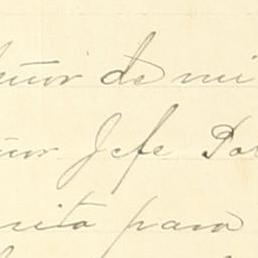 señor de mi
ñor Jefe Po
rito para